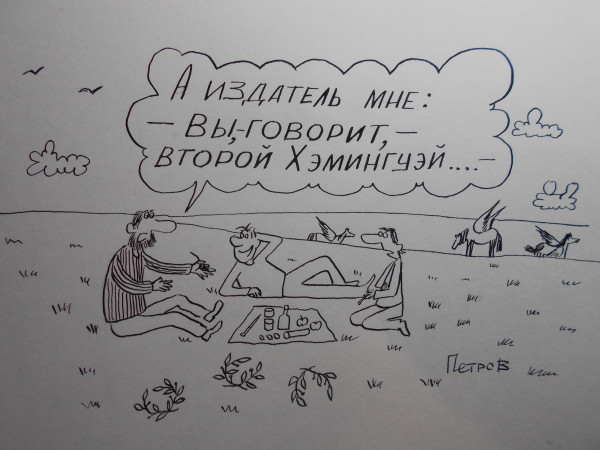 А ИЗДАТЕЛЬ МНЕ:
— ВЫ,-ГОВОРИТ, —
ВТОРОЙ ХЭМИНГУЭЙ....—
ПЕТРОВ